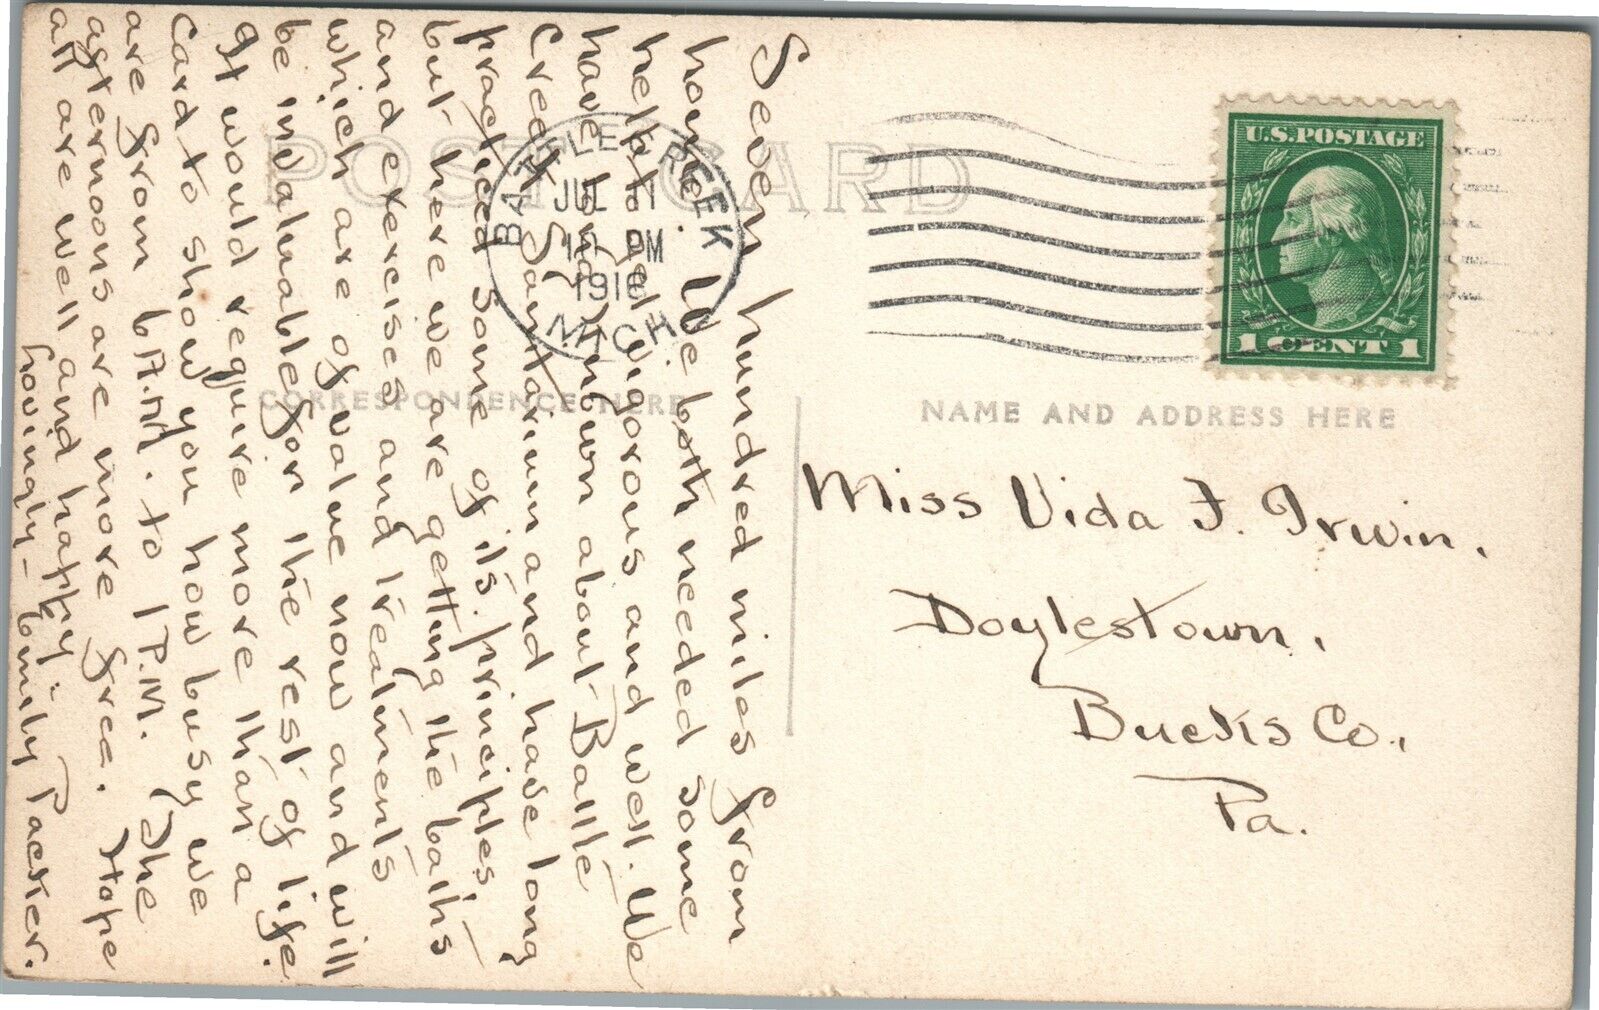 POST CARD
CORRESPONDENCE HERE
NAME AND ADDRESS HERE
BATTLE CREEK
JUL 11
12 PM
1916
MICH.
U.S. POSTAGE
1 CENT 1
Miss Vida F. Irwin.
Doylestown,
Bucks Co.,
Pa.
Seven hundred miles from
home. We both needed some
help to get vigorous and well. We
have long known about Battle
Creek Sanitarium and have long
practiced some of its principles,
but here we are getting the baths
and exercises and treatments
which are of value now and will
be invaluable for the rest of life.
It would require more than a
card to show you how busy we
are from 6 A.M. to 1 P.M. The
afternoons are more free. Hope
all are well and happy.
Lovingly - Emily Packer.